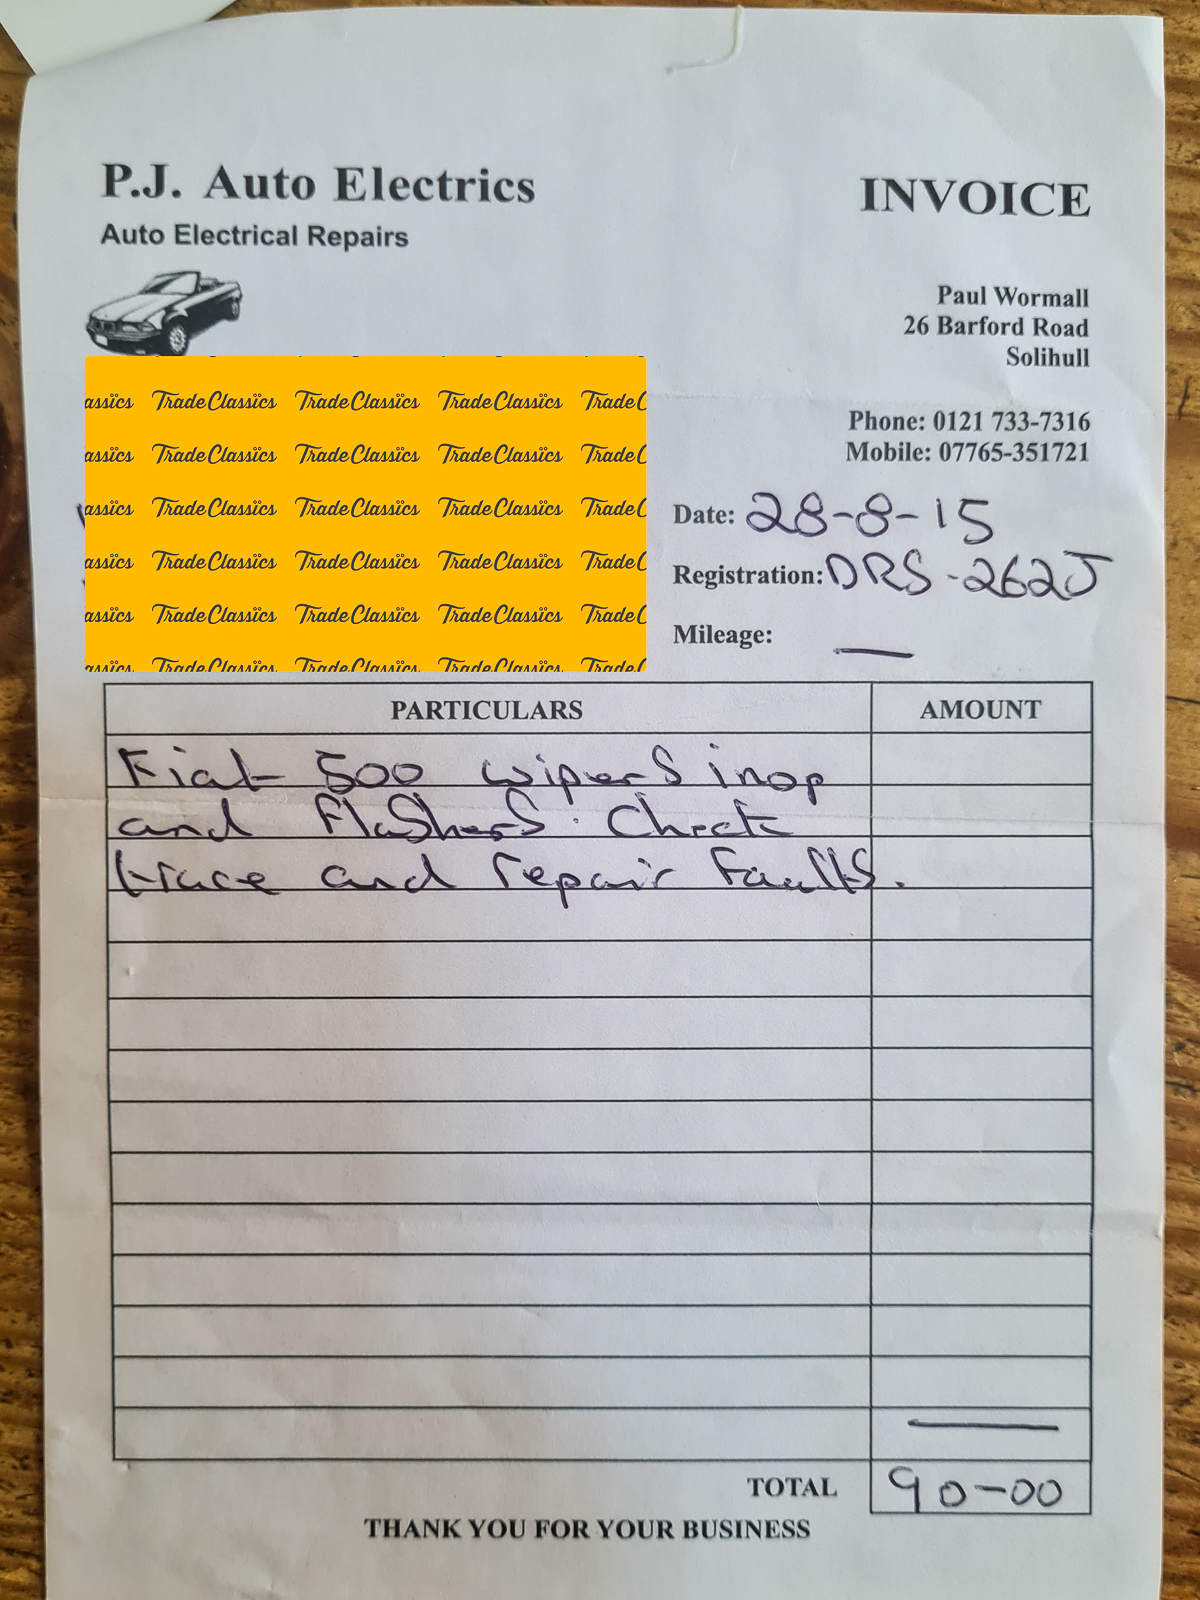 P.J. Auto Electrics
Auto Electrical Repairs
INVOICE
Paul Wormall
26 Barford Road
Solihull
Phone: 0121 733-7316
Mobile: 07765-351721
assïcs TradeClassïcs TradeClassïcs TradeClassïcs TradeC
assïcs TradeClassïcs TradeClassïcs TradeClassïcs TradeC
assïcs TradeClassïcs TradeClassïcs TradeClassïcs TradeC
assïcs TradeClassïcs TradeClassïcs TradeClassïcs TradeC
assïcs TradeClassïcs TradeClassïcs TradeClassïcs TradeC
assïcs TradeClassïcs TradeClassïcs TradeClassïcs TradeC
Date: 28-8-15
Registration: DRS-262J
Mileage: —
PARTICULARS AMOUNT
Fiat 500 wipers inop
and flashers. Check
trace and repair faults.
TOTAL 90-00
THANK YOU FOR YOUR BUSINESS